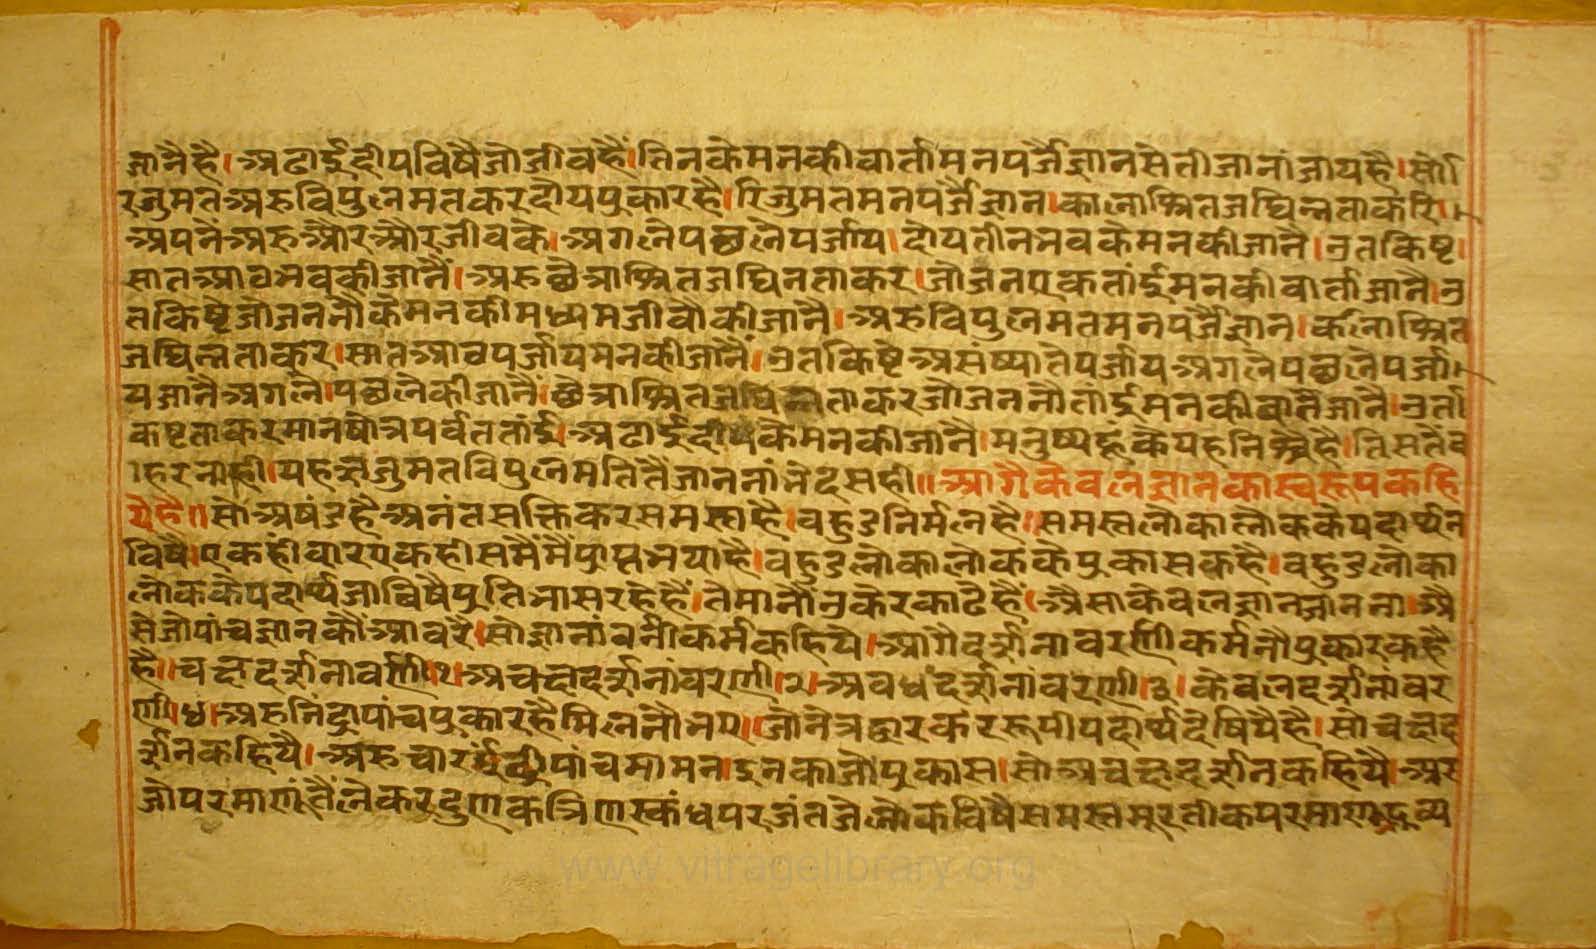 जानैहै। अढाईदीपविषैजोजीवहै।तिनकेमनकीवार्तामनपर्जैज्ञानसेतीजानांजायहै।सो।
रजुमतअरुविपुलमतकरदोयपुकारहै।रिजुमतमनपर्जैज्ञान।कालाश्रितजघिन्नताकरि।
अपनैंअरुऔरऔरजीवके।अगलेपछलेपर्जाय।दोयतीनभवकेमनकीजानै।उतकिष्ट।
सातआठभवकीजानैं।अरुछैत्राश्रितजघिनताकर।जोजनएकतांईमनकीवार्ताजानै।उ
तकिष्टजोजननौकैमनकीमध्यमजीवौकीजानै।अरुविपुलमतमनपर्जैज्ञान।कलाश्रित
जघिन्नताकर।सातआठपर्जायमनकीजानैं।उतकिष्टेअसंष्यातेपर्जायअगलेपछलेपर्जा
यजानैअगले।पछलेकीजानै।छैत्राश्रितजघिन्नताकरजोजननौतांईमनकीबातैजानै।उर्त
कष्टताकरमानषोत्रपर्वततांई।अढाईदीपकैमनकीजानै।मनुष्यहूंकैयहनिश्चैहै।तिसतैंब
ाहरनाही।यहरुजुमतविपुलमतितैजाननांभेदसही॥आगैकेवलज्ञानकास्वरूपकहि
येहै॥सोअषंडहैअनंतसक्तिकरसमस्तहै।बहुडनिर्मलहै।समस्तलोकालोककेपदार्थन
विषै।एकहीवारएकहीसमैंमैंप्राप्तभयाहै।बहुडलोकालोककैपुकासकहै।बहुडलोका
लोककैपदार्थजाविषैपुतिभासरहेहैं।तेमानौंउकेरकाढेहैं।अैसाकेवलज्ञानजानना।अै
सेजोपांचज्ञानकौंआवरै।सोज्ञानांवर्नीकर्मकहिये।आगैदर्शनावरणीकर्मनौपुकारकहै
है॥चक्षदर्शनावर्णी१।अचक्षदर्शनांवरणी।२।अवधंदर्शनांवरणी।३।केवलदर्शनांवर
णी।४।अरुनिंद्रापांचपुकारहैमिलनौभए।जोनेत्रद्वारकररूपीपदार्थदेषियैहै।सोचक्षद
र्शनकहियै।अरुचारइंद्रीपांचमामन।इनकाजोपुकास।सोअचक्षदर्शनकहियै।अर
जोपरमाणुंतैंलेकरदुणकत्रिणस्कंधपरजंतजेलोकविषैसमस्तमूरतीकपरमाणुद्रव्य
www.vitragelibrary.org